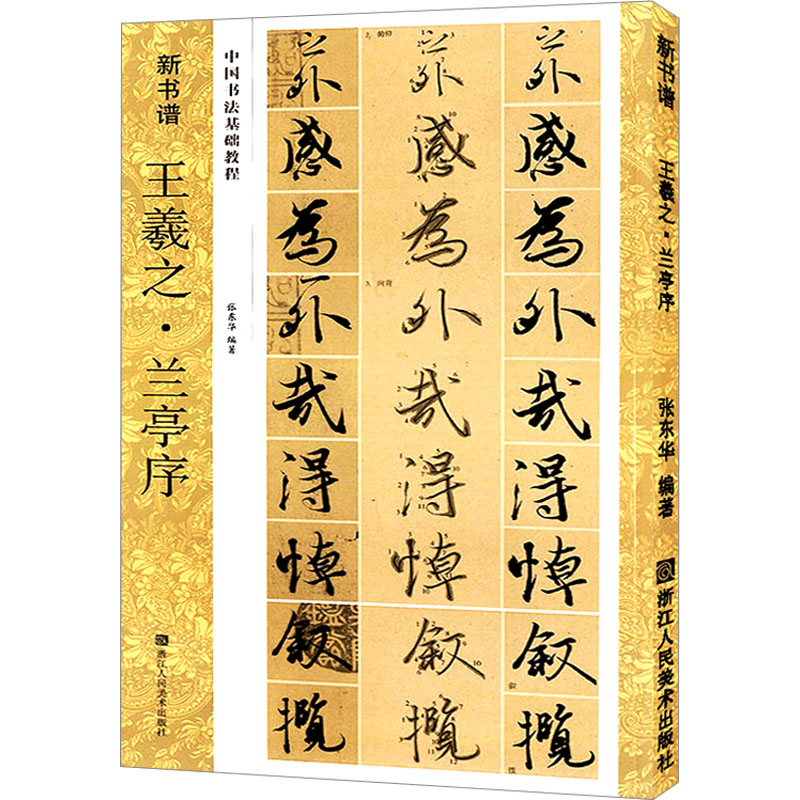 新书谱
王羲之·兰亭序
浙江人民美术出版社
中国书法基础教程
张东华 编著
感
為
外
哉
得
悼
叙
攬
2. 俯仰
感
為
3. 向背
外
哉
得
悼
叙
攬
感
為
外
哉
得
悼
叙
攬
新书谱
王羲之·兰亭序
张东华 编著
浙江人民美术出版社